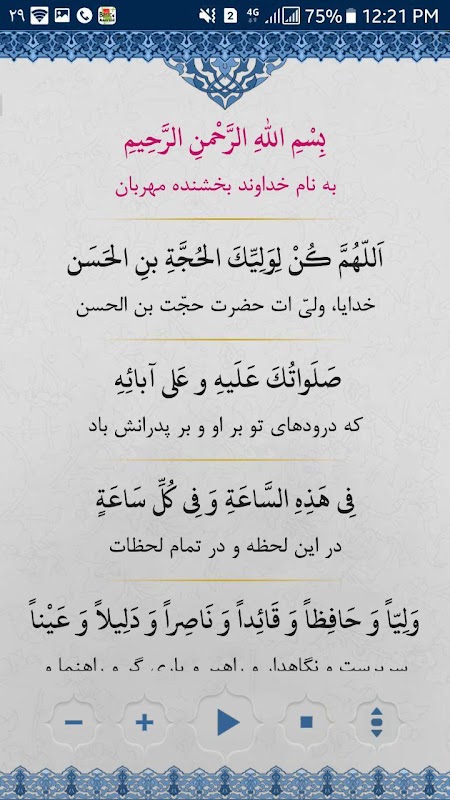 ۲۹ 2 4G 75% 12:21 PM
بِسْمِ اللهِ الرَّحْمنِ الرَّحِيمِ
به نام خداوند بخشنده مهربان
اَللّهُمَّ كُنْ لِوَلِيِّكَ الحُجَّةِ بنِ الحَسَن
خدایا، ولیّ ات حضرت حجّت بن الحسن
صَلَواتُكَ عَلَيهِ و عَلى آبائِهِ
که درودهای تو بر او و بر پدرانش باد
فِي هَذِهِ السَّاعَةِ وَ فِي كُلِّ سَاعَةٍ
در این لحظه و در تمام لحظات
وَلِيّاً وَ حَافِظاً وَ قَائِداً وَ نَاصِراً وَ دَلِيلاً وَ عَيْناً
سرپرست و نگاهدار و راهبر و یاری گر و راهنما و